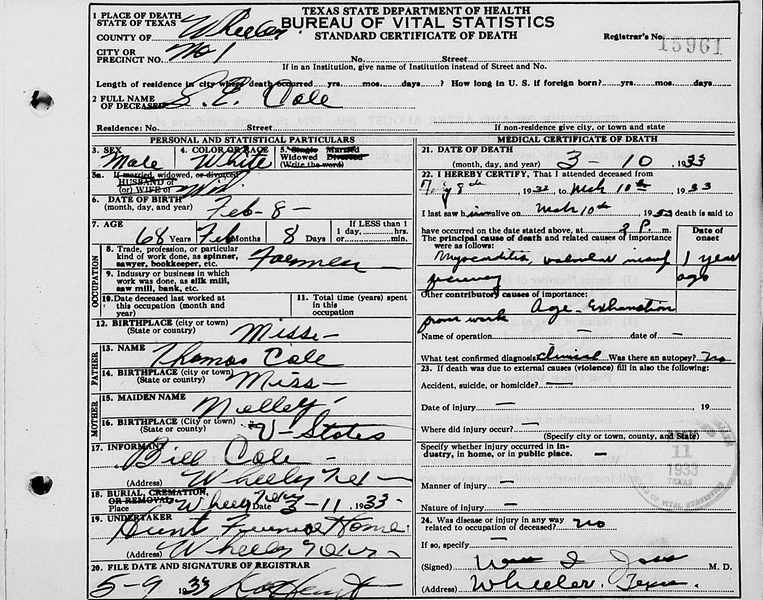 TEXAS STATE DEPARTMENT OF HEALTH
BUREAU OF VITAL STATISTICS
STANDARD CERTIFICATE OF DEATH
1 PLACE OF DEATH
STATE OF TEXAS
COUNTY OF Wheeler
Registrar's No.
15961
CITY OR
PRECINCT NO. No 1 No. Street
If in an Institution, give name of Institution instead of Street and No.
Length of residence in city where death occurred yrs. mos. days? How long in U. S. if foreign born? yrs. mos. days.
2 FULL NAME
OF DECEASED S. E. Cole
Residence: No. Street If non-residence give city, or town and state
PERSONAL AND STATISTICAL PARTICULARS
3. SEX 4. COLOR OR RACE 5. Single Married
Widowed Divorced
(Write the word)
Male White
5a. If married, widowed, or divorced
HUSBAND of
(or) WIFE of
6. DATE OF BIRTH
(month, day, and year) Feb-8-
7. AGE If LESS than 1
1 day, hrs.
or min.
68 Years Feb Months 8 Days
OCCUPATION
8. Trade, profession, or particular
kind of work done, as spinner,
sawyer, bookkeeper, etc. Farmer
9. Industry or business in which
work was done, as silk mill,
saw mill, bank, etc.
10. Date deceased last worked at
this occupation (month and
year)
11. Total time (years) spent
in this
occupation
12. BIRTHPLACE (city or town)
(State or country) Miss-
FATHER
13. NAME Thomas Cole
14. BIRTHPLACE (city or town)
(State or country) Miss-
MOTHER
15. MAIDEN NAME Nelley-
16. BIRTHPLACE (City or town)
(State or country) U-States
17. INFORMANT Bill Cole-
(Address) Wheeler Tex-
18. BURIAL, CREMATION,
OR REMOVAL
Place Wheeler Texas Date 3-11, 1933-
19. UNDERTAKER Hunt Funeral Home.
(Address) Wheeler Texas-
20. FILE DATE AND SIGNATURE OF REGISTRAR
5-9 1933
MEDICAL CERTIFICATE OF DEATH
21. DATE OF DEATH
(month, day, and year) 3-10, 1933
22. I HEREBY CERTIFY, That I attended deceased from
19 to Mch 10th 1933
I last saw him alive on Mch 10th 1933 death is said to
have occurred on the date stated above, at P. m.
The principal cause of death and related causes of importance
were as follows:
Date of
onset
Myocarditis, valvular insuf
ficiency
1 year
ago
Other contributory causes of importance:
Age-Exhaustion
from work
Name of operation — date of —
What test confirmed diagnosis Clinical Was there an autopsy? No
23. If death was due to external causes (violence) fill in also the following:
Accident, suicide, or homicide? —
Date of injury — 19
Where did injury occur? —
(Specify city or town, county, and State)
Specify whether injury occurred in in-
dustry, in home, or in public place. —
Manner of injury —
Nature of injury —
11
1933
TEXAS
BUREAU OF VITAL STATISTICS
24. Was disease or injury in any way
related to occupation of deceased? no
If so, specify —
(Signed) M. D.
(Address) Wheeler, Texas.